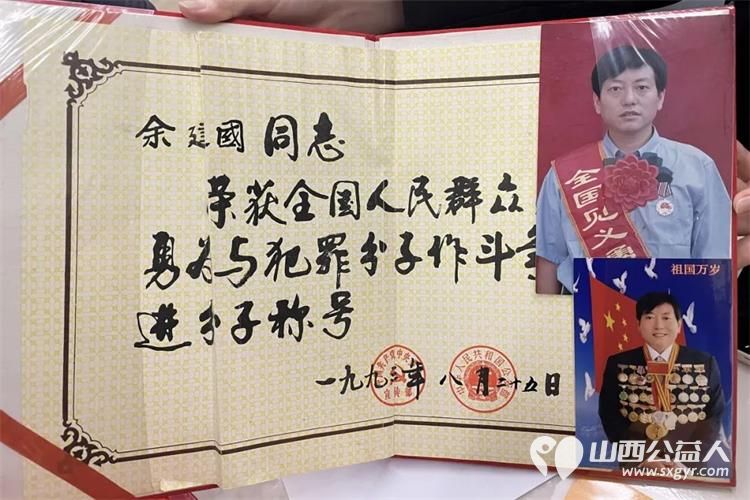 余建國 同志
荣获全国人民群众
勇为与犯罪分子作斗争
进分子称号
一九九三年 八月二十五日
全国见义勇
祖国万岁
山西公益人
www.sxgyr.com